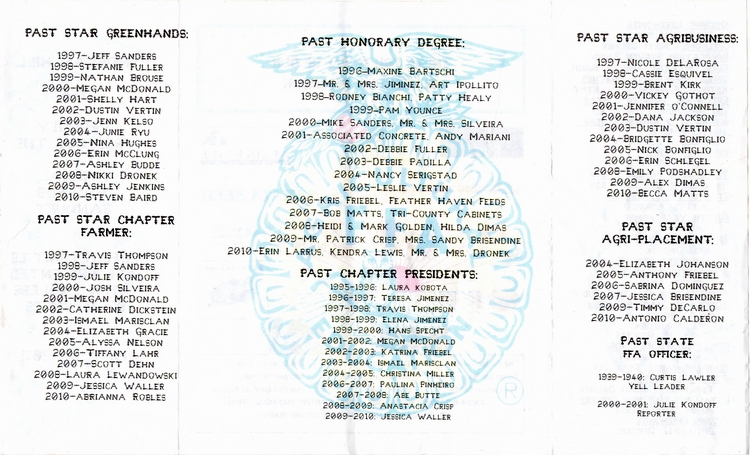 PAST STAR GREENHANDS:
1997-JEFF SANDERS
1998-STEFANIE FULLER
1999-NATHAN BROUSE
2000-MEGAN MCDONALD
2001-SHELLY HART
2002-DUSTIN VERTIN
2003-JENN KELSO
2004-JUNIE RYU
2005-NINA HUGHES
2006-ERIN MCCLUNG
2007-ASHLEY BUDDE
2008-NIKKI DRONEK
2009-ASHLEY JENKINS
2010-STEVEN BAIRD
PAST STAR CHAPTER
FARMER:
1997-TRAVIS THOMPSON
1998-JEFF SANDERS
1999-JULIE KONDOFF
2000-JOSH SILVEIRA
2001-MEGAN MCDONALD
2002-CATHERINE DICKSTEIN
2003-ISMAEL MARISCLAN
2004-ELIZABETH GRACIE
2005-ALYSSA NELSON
2006-TIFFANY LAHR
2007-SCOTT DEHN
2008-LAURA LEWANDOWSKI
2009-JESSICA WALLER
2010-ABRIANNA ROBLES
PAST HONORARY DEGREE:
1996-MAXINE BARTSCHI
1997-MR. & MRS. JIMINEZ, ART IPOLLITO
1998-RODNEY BIANCHI, PATTY HEALY
1999-PAM YOUNCE
2000-MIKE SANDERS, MR. & MRS. SILVEIRA
2001-ASSOCIATED CONCRETE, ANDY MARIANI
2002-DEBBIE FULLER
2003-DEBBIE PADILLA
2004-NANCY SERIGSTAD
2005-LESLIE VERTIN
2006-KRIS FRIEBEL, FEATHER HAVEN FEEDS
2007-BOB MATTS, TRI-COUNTY CABINETS
2008-HEIDI & MARK GOLDEN, HILDA DIMAS
2009-MR. PATRICK CRISP, MRS. SANDY BRISENDINE
2010-ERIN LARRUS, KENDRA LEWIS, MR. & MRS. DRONEK
PAST CHAPTER PRESIDENTS:
1995-1996: LAURA KOBOTA
1996-1997: TERESA JIMENEZ
1997-1998: TRAVIS THOMPSON
1998-1999: ELENA JIMENEZ
1999-2000: HANS SPECHT
2001-2002: MEGAN MCDONALD
2002-2003: KATRINA FRIEBEL
2003-2004: ISMAEL MARISCLAN
2004-2005: CHRISTINA MILLER
2006-2007: PAULINA PINHEIRO
2007-2008: ABE BUTTE
2008-2009: ANASTACIA CRISP
2009-2010: JESSICA WALLER
PAST STAR AGRIBUSINESS:
1997-NICOLE DELAROSA
1998-CASSIE ESQUIVEL
1999-BRENT KIRK
2000-VICKEY GOTHOT
2001-JENNIFER O'CONNELL
2002-DANA JACKSON
2003-DUSTIN VERTIN
2004-BRIDGETTE BONFIGLIO
2005-NICK BONFIGLIO
2006-ERIN SCHLEGEL
2008-EMILY PODSHADLEY
2009-ALEX DIMAS
2010-BECCA MATTS
PAST STAR
AGRI-PLACEMENT:
2004-ELIZABETH JOHANSON
2005-ANTHONY FRIEBEL
2006-SABRINA DOMINGUEZ
2007-JESSICA BRISENDINE
2009-TIMMY DECARLO
2010-ANTONIO CALDERON
PAST STATE
FFA OFFICER:
1939-1940: CURTIS LAWLER
YELL LEADER
2000-2001: JULIE KONDOFF
REPORTER